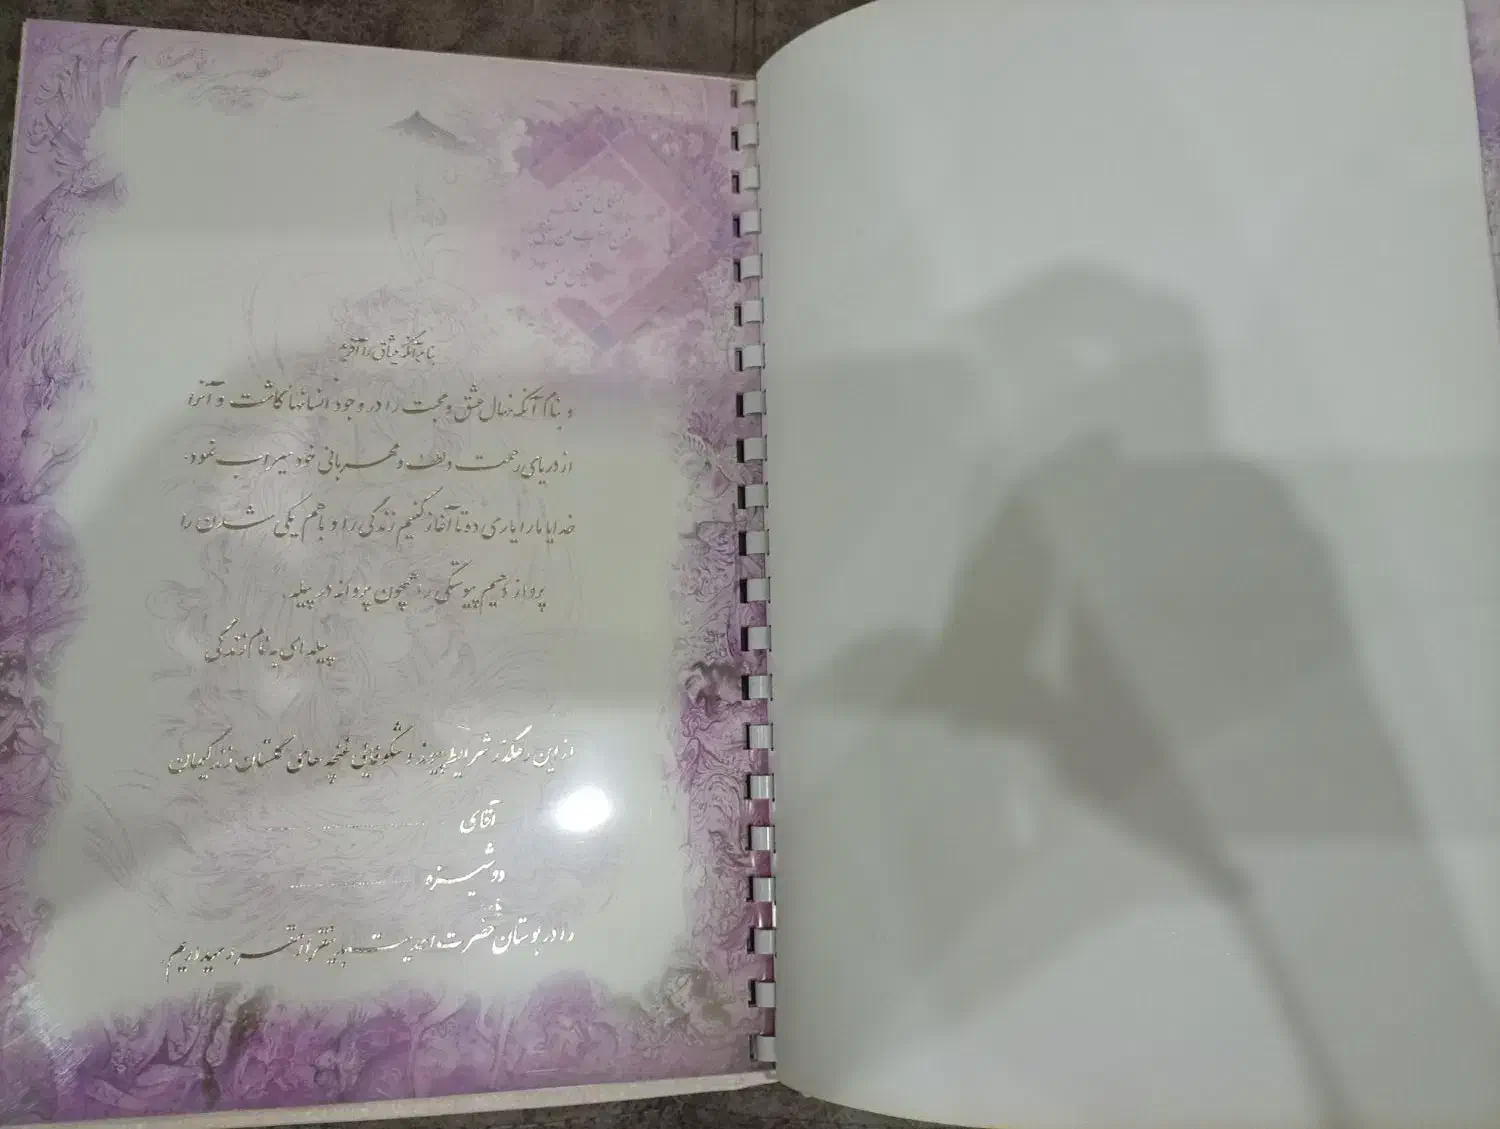 بنام آنکه میثاق را آفرید
و بنام آنکه نهال عشق و محبت را در وجود انسانها کاشت و آنرا
از دریای رحمت و لطف و مهربانی خود سیراب نمود.
خدایا ما را یاری ده تا آغاز کنیم زندگی را و با هم یکی شدن را
پرواز دهیم پیوستگی را همچون پروانه در پیله.
پیله ای به نام زندگی
از این رهگذر شرایط پیوند و شکوفایی غنچه های گلستان زندگیمان
آقای
دوشیزه
نامه
را در بوستان حضرت احدیت بدینقرار مقرر میداریم.